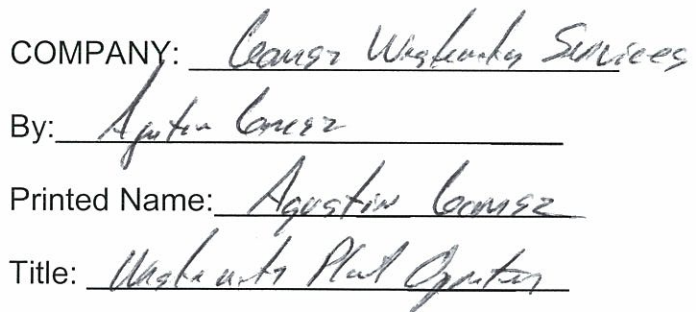 COMPANY: Gomez Wastewater Services
By: Agustin Gomez
Printed Name: Agustin Gomez
Title: Wastewater Plant Operator